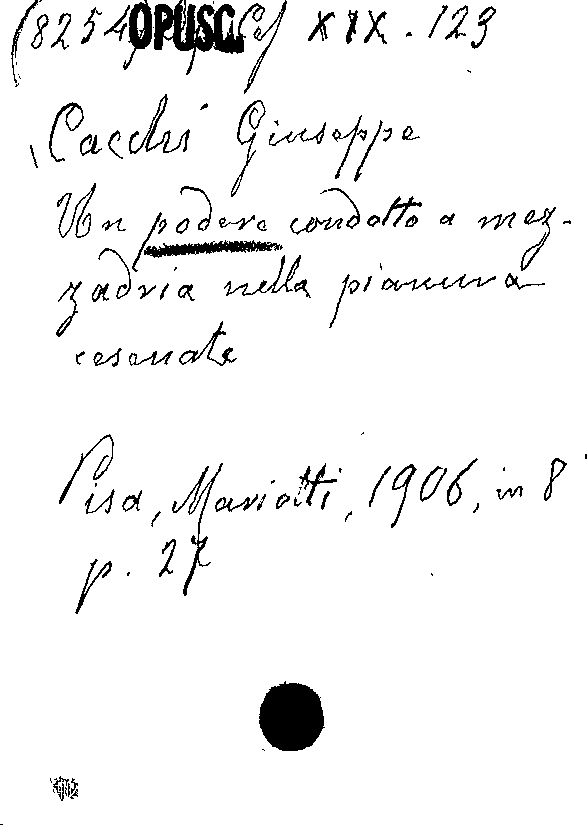 (8254) OPUSC. XIX. 123
Cacchi Giuseppe
Un podere condotto a mez-
zadria nella pianura
cesenate
Pisa, Mariotti, 1906, in 8°
p. 27